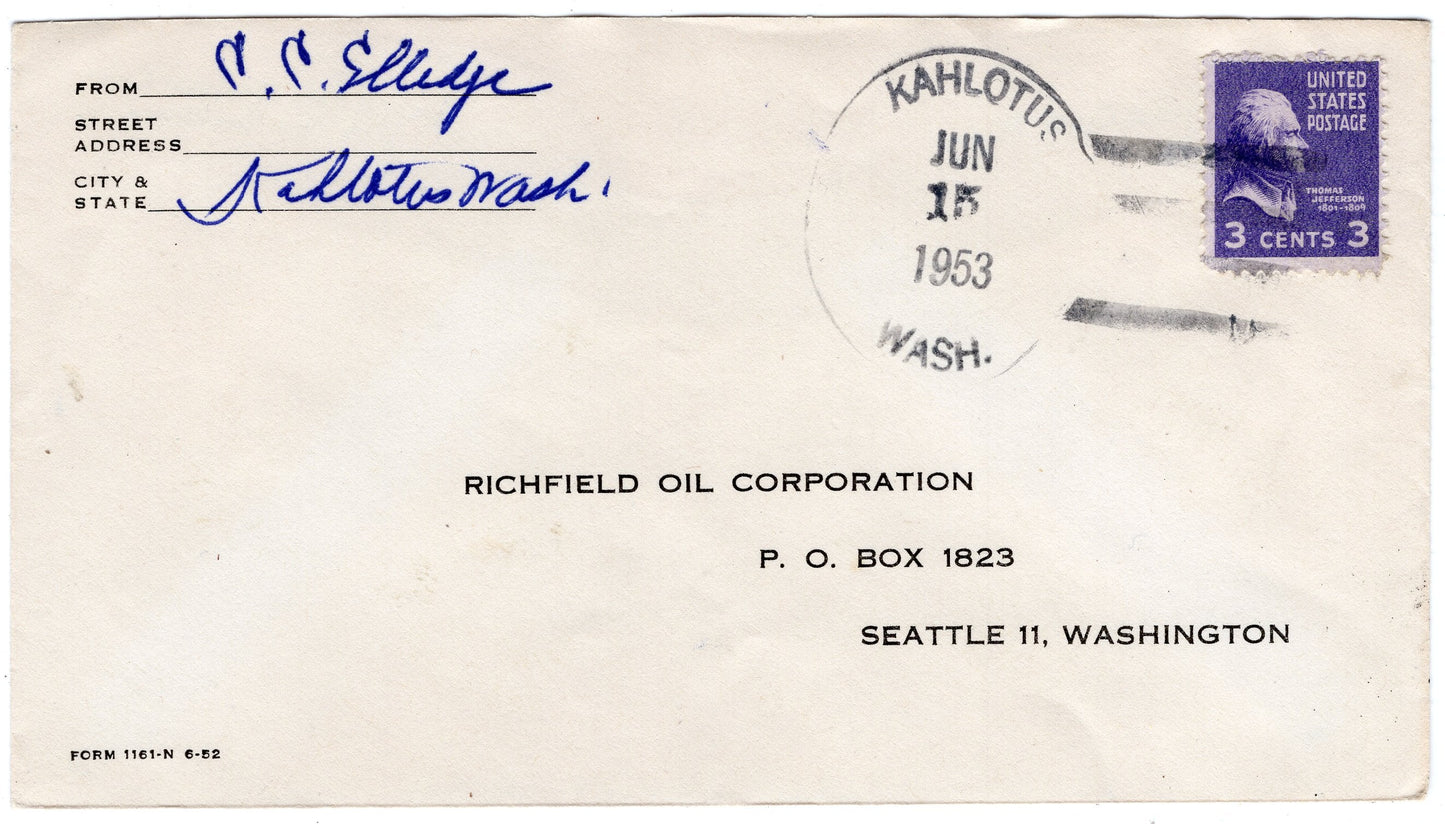 FROM C. C. Elledge
STREET
ADDRESS
CITY &
STATE Kahlotus Wash.
KAHLOTUS
JUN
15
1953
WASH.
UNITED
STATES
POSTAGE
THOMAS
JEFFERSON
1801-1809
3 CENTS 3
RICHFIELD OIL CORPORATION
P. O. BOX 1823
SEATTLE 11, WASHINGTON
FORM 1161-N 6-52